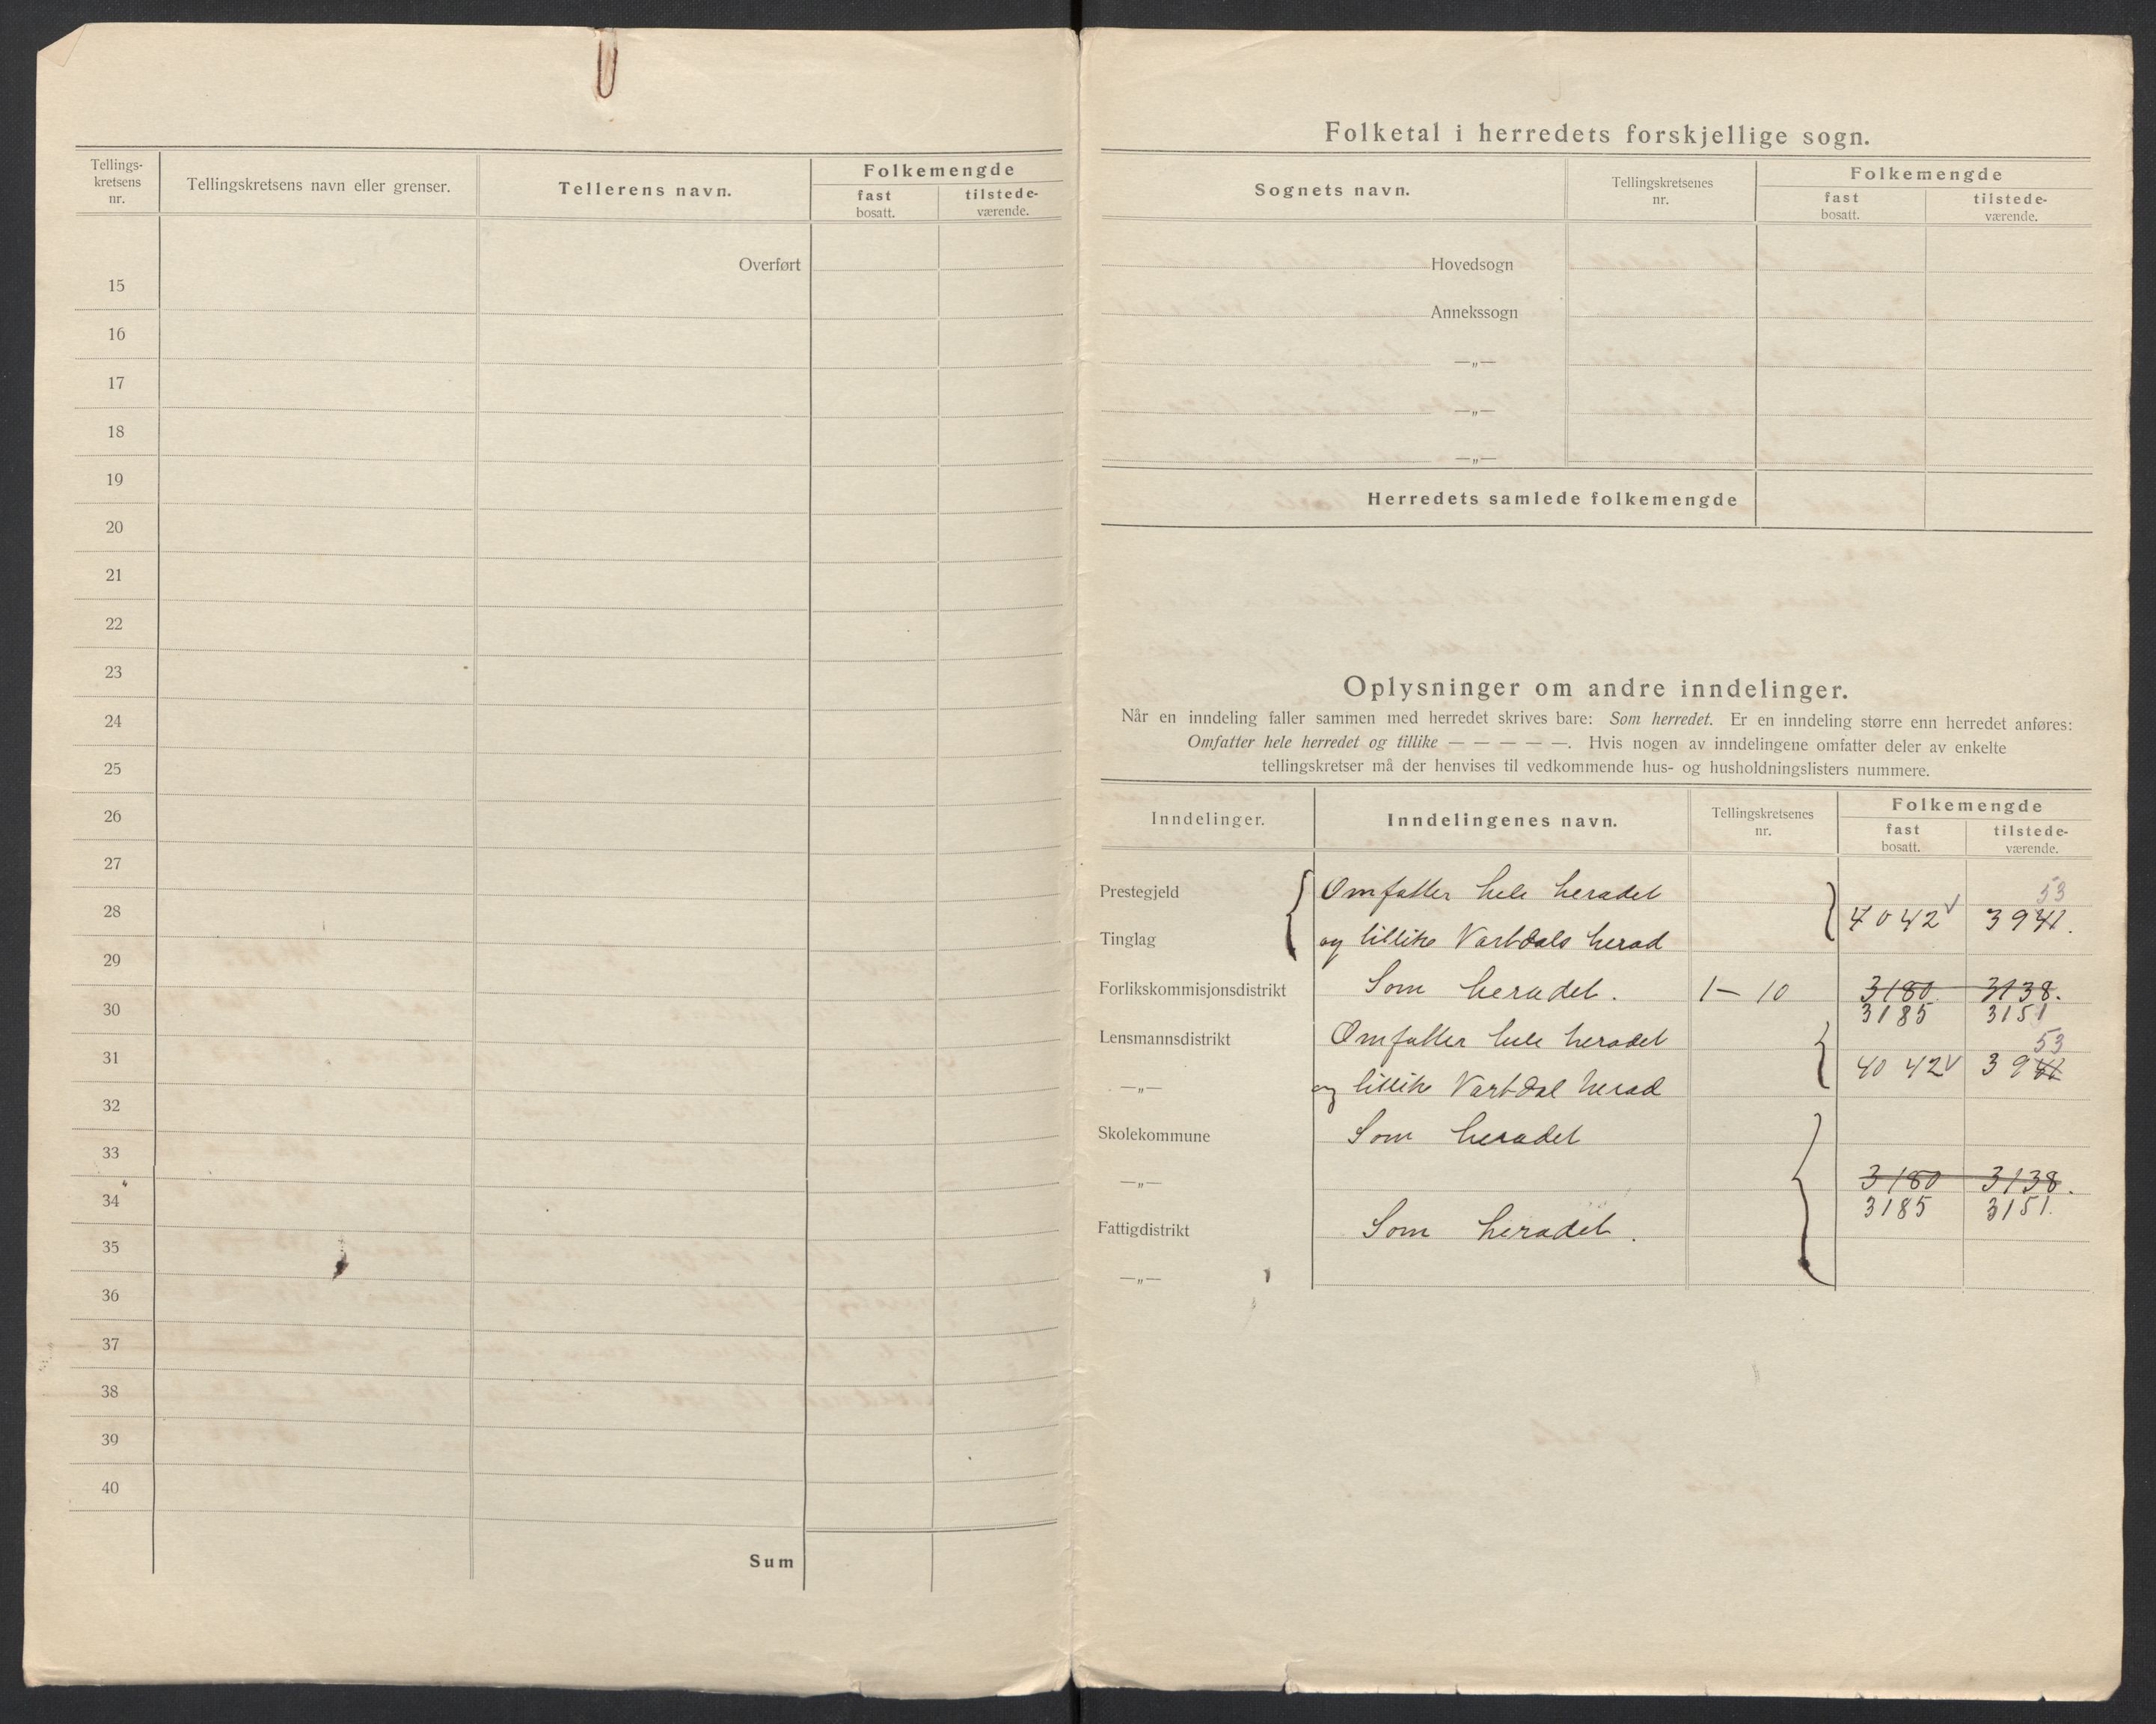 Tellings-
kretsens
nr.
Tellingskretsens navn eller grenser.
Tellerens navn.
Folkemengde
fast
bosatt.
tilstede-
værende.
Overført
15
16
17
18
19
20
21
22
23
24
25
26
27
28
29
30
31
32
33
34
35
36
37
38
39
40
Sum
Folketal i herredets forskjellige sogn.
Sognets navn.
Tellingskretsenes
nr.
Folkemengde
fast
bosatt.
tilstede-
værende.
Hovedsogn
Annekssogn
—„—
—„—
—„—
Herredets samlede folkemengde
Oplysninger om andre inndelinger.
Når en inndeling faller sammen med herredet skrives bare: Som herredet. Er en inndeling større enn herredet anføres:
Omfatter hele herredet og tillike — — — — —. Hvis nogen av inndelingene omfatter deler av enkelte
tellingskretser må der henvises til vedkommende hus- og husholdningslisters nummere.
Inndelinger.
Inndelingenes navn.
Tellingskretsenes
nr.
Folkemengde
fast
bosatt.
tilstede-
værende.
Prestegjeld Omfatter hele heradet
53
4042 √ 3941.
Tinglag og tillike Vartdals herad
Forlikskommisjonsdistrikt Som heradet. 1 – 10 3180 3138.
3185 3151
Lensmannsdistrikt Omfatter hele heradet
53
4042 √ 3941
—„— og tillike Vartdal herad
Skolekommune Som heradet
—„— 3180 3138.
3185 3151.
Fattigdistrikt Som heradet.
—„—